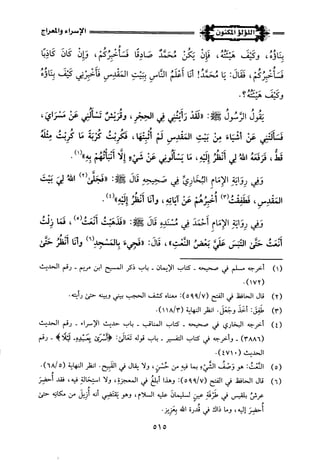 اللؤلؤ المكنون
الإسراء والمعراج
بِنَاؤُهُ، وكَيْفَ هَيْئَتُهُ، فَإِنْ يَكُنْ مُحَمَّدٌ صَادِقًا فَسَأُخْبِرُكُمْ، وَإِنْ كَانَ كَاذِبًا
فَسَأُخْبِرُكُمْ، فَقَالَ: يَا مُحَمَّدُ! أَنَا أَعْلَمُ النَّاسِ بِبَيْتِ المَقْدِسِ فَأَخْبِرْنِي كَيْفَ بِنَاؤُهُ
وكَيْفَ هَيْئَتُهُ؟.
يَقُولُ الرَّسُولُ ﷺ: «لَقَدْ رَأَيْتُنِي فِي الحِجْرِ، وقُرَيْشٌ تَسْأَلُنِي عَنْ مَسْرَايَ،
فَسَأَلَتْنِي عَنْ أَشْيَاءَ مِنْ بَيْتِ المَقْدِسِ لَمْ أُثْبِتْهَا، فَكُرِبْتُ كُرْبَةً مَا كُرِبْتُ مِثْلَهُ
قَطُّ، فَرَفَعَهُ اللهُ لِي أَنْظُرُ إِلَيْهِ، مَا يَسْأَلُونِي عَنْ شَيْءٍ إِلَّا أَنْبَأْتُهُمْ بِهِ»(١).
وَفِي رِوَايَةِ الإِمَامِ البُخَارِيِّ فِي صَحِيحِهِ قَالَ ﷺ: «فَجَلَّى(٢) اللهُ لِي بَيْتَ
المَقْدِسِ، فَطَفِقْتُ(٣) أُخْبِرُهُمْ عَنْ آيَاتِهِ، وأَنَا أَنْظُرُ إِلَيْهِ»(٤).
وَفِي رِوَايَةِ الإِمَامِ أَحْمَدَ فِي مُسْنَدِهِ قَالَ ﷺ: «فَذَهَبْتُ أَنْعَتُ(٥)، فَمَا زِلْتُ
أَنْعَتُ حَتَّى الْتَبَسَ عَلَيَّ بَعْضُ النَّعْتِ»، قَالَ: «فَجِيءَ بِالمَسْجِدِ(٦) وأَنَا أَنْظُرُ حَتَّى
(١) أخرجه مسلم في صحيحه - كتاب الإيمان - باب ذكر المسيح ابن مريم - رقم الحديث
(١٧٢).
(٢) قال الحافظ في الفتح (٥٩٩/٧): معناه كشف الحجب بيني وبينه حتى رأيته.
(٣) طَفِقَ: أَخَذَ وجَعَلَ. انظر النهاية (١١٨/٣).
(٤) أخرجه البخاري في صحيحه - كتاب المناقب - باب حديث الإسراء - رقم الحديث
(٣٨٨٦) - وأخرجه في كتاب التفسير - باب قوله تَعَالَى: ﴿أَسْرَىٰ بِعَبْدِهِ لَيْلًا﴾ - رقم
الحديث (٤٧١٠).
(٥) النَّعْتُ: هو وَصْفُ الشَّيْءِ بما فيه من حُسْنٍ، ولا يقال في القبيح. انظر النهاية (٦٨/٥).
(٦) قال الحافظ في الفتح (٥٩٩/٧): وهذا أبلغُ في المعجزة، ولا استحالة فيه، فقد أُحضِرَ
عرشُ بلقيس في طَرْفَةِ عينٍ لسليمانَ عليه السلام، وهو يَقْتَضِي أنه أُزِيلَ من مكانِهِ حتى
أُحضِرَ إليه، وما ذاك في قُدرة الله بعزيز.
٥١٥